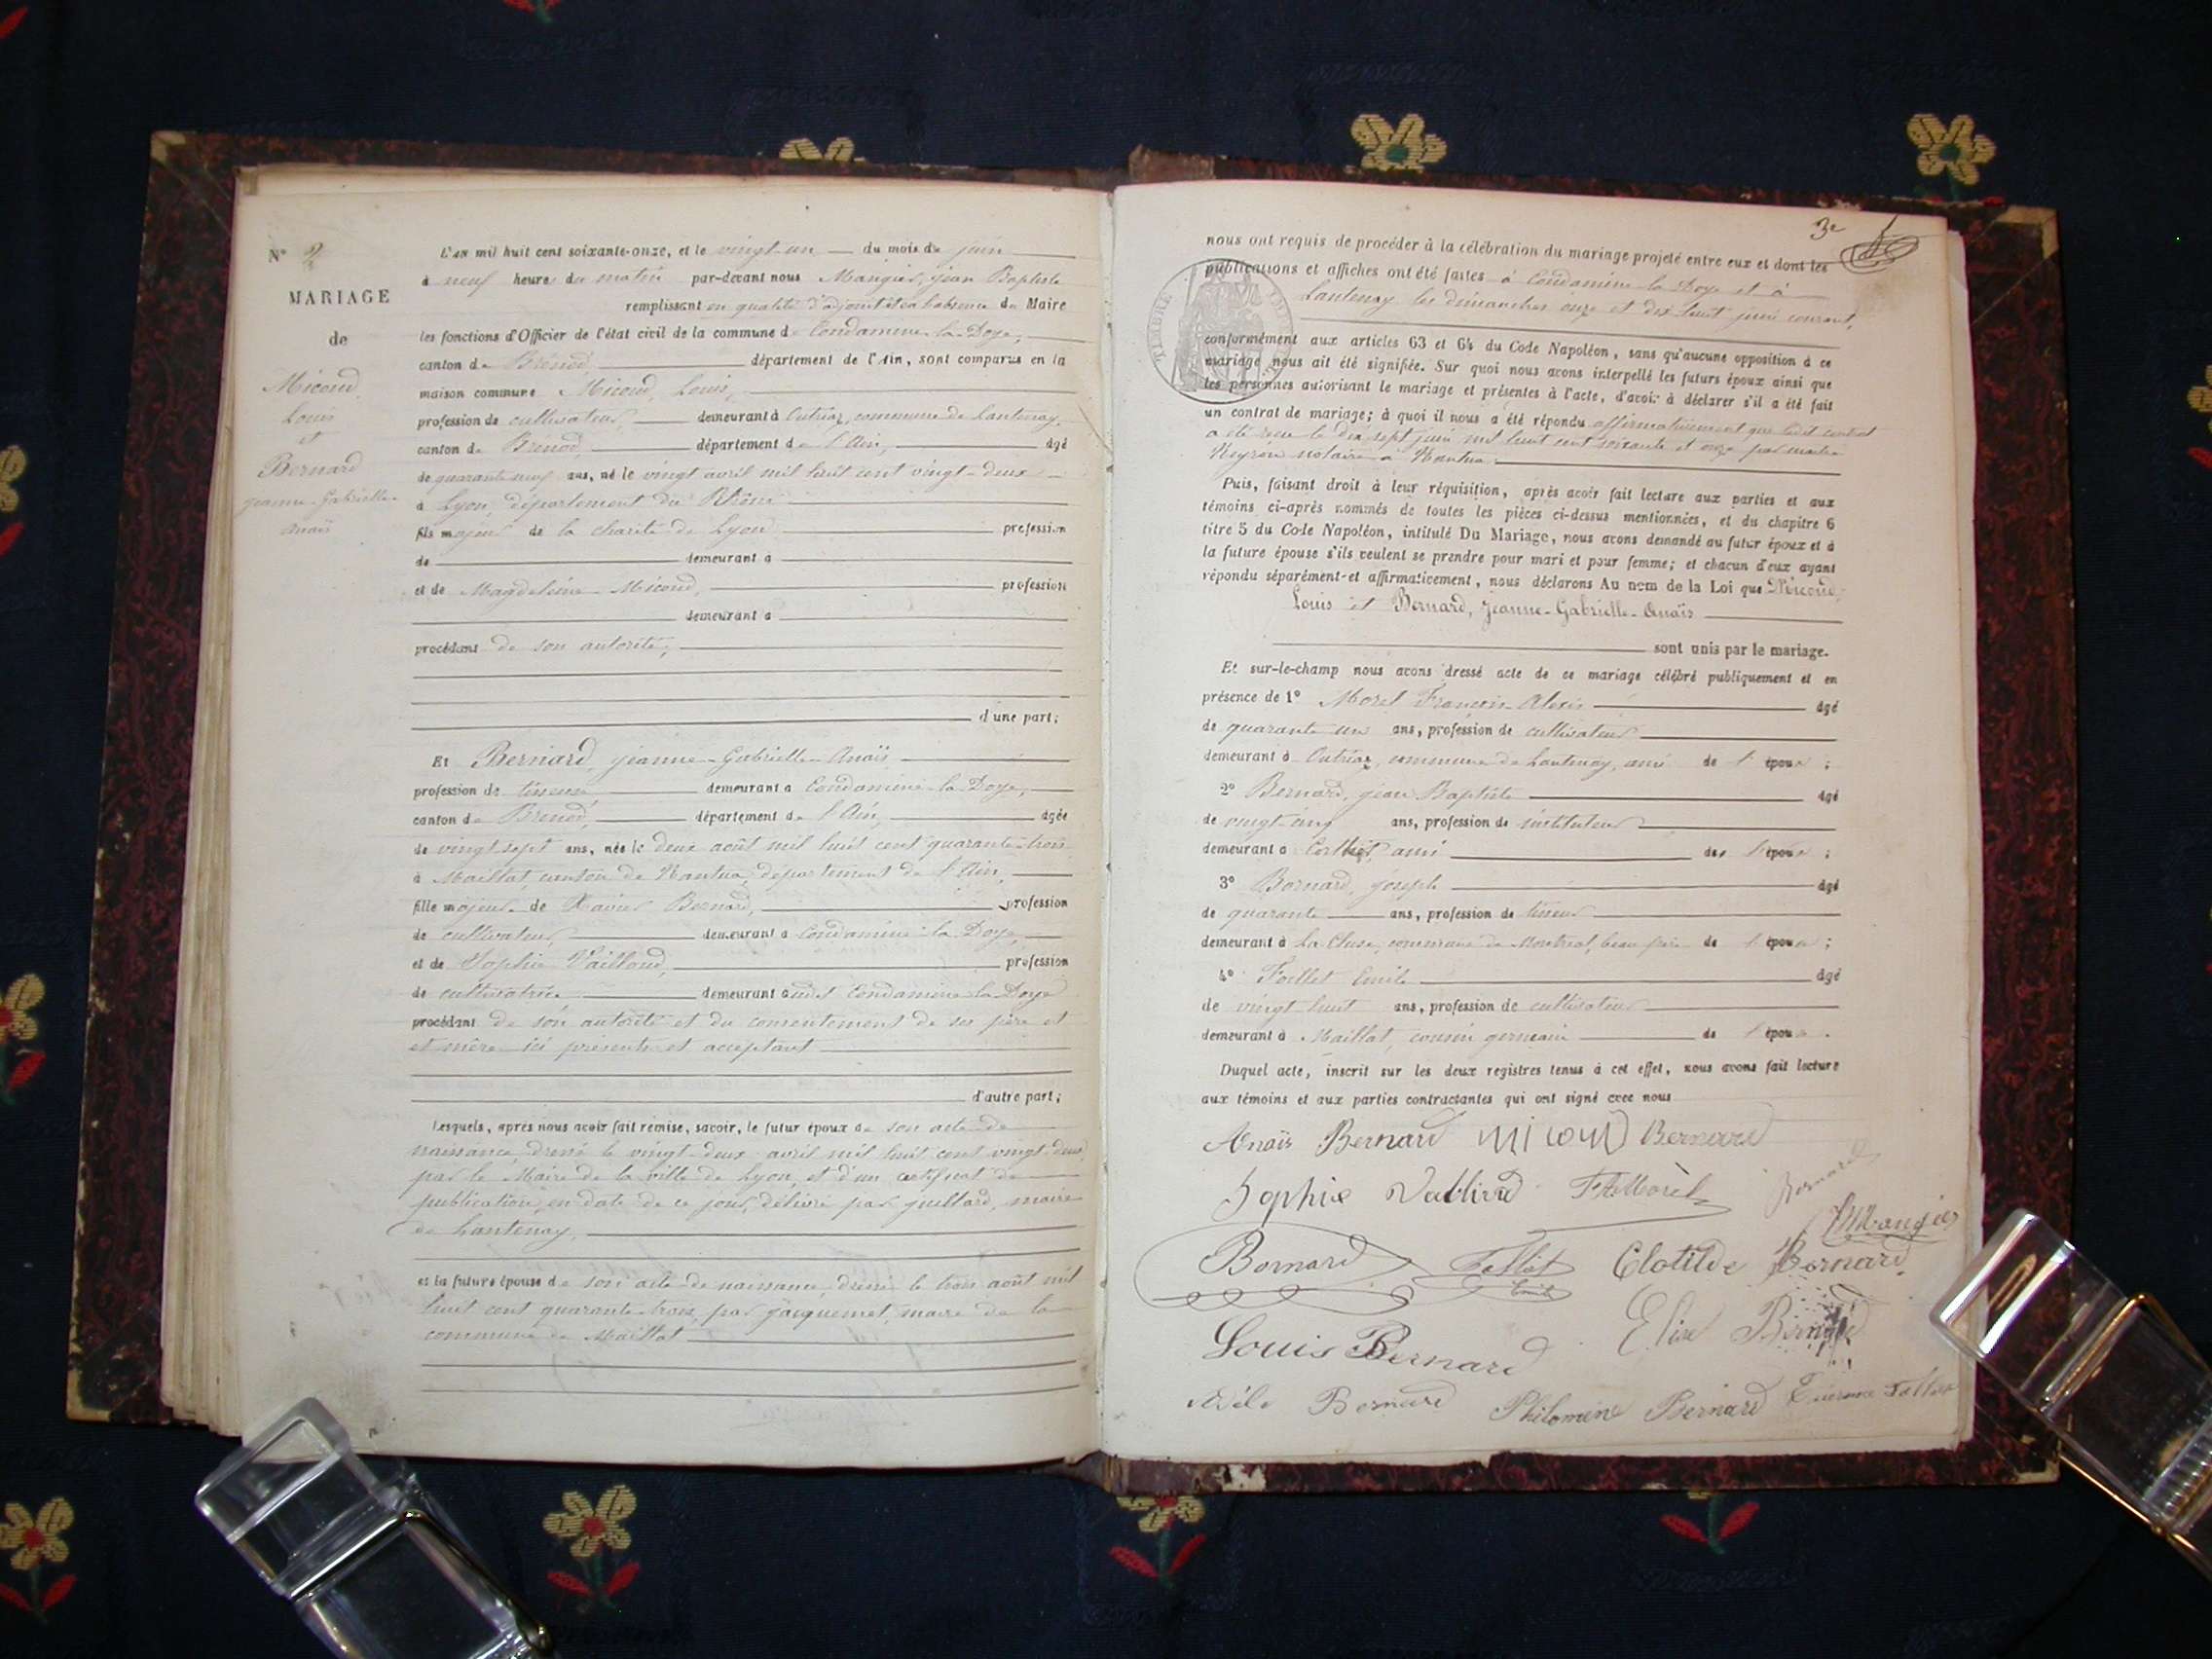 N° 2
MARIAGE
de
Micoud,
Louis
et
Bernard
jeanne-Gabrielle-
Anaïs
L'an mil huit cent soixante-onze, et le vingt-un du mois de juin
à neuf heures du matin par-devant nous Mangier, jean Baptiste
remplissant en qualité d'adjoint et en l'absence du Maire
les fonctions d'Officier de l'état civil de la commune de Condamine-la-Doye,
canton de Brénod, département de l'Ain, sont comparus en la
maison commune Micoud, Louis,
profession de cultivateur, demeurant à Outriaz, commune de Lantenay,
canton de Brénod, département de l'Ain, âgé
de quarante neuf ans, né le vingt avril mil huit cent vingt-deux
à Lyon, département du Rhône
fils majeur de la charité de Lyon profession
de demeurant à
et de Magdeleine Micoud, profession
demeurant à
procédant de son autorité,
d'une part;
Et Bernard, jeanne-Gabrielle-Anaïs
profession de tisseuse demeurant à Condamine-la-Doye,
canton de Brénod, département de l'Ain, âgée
de vingt sept ans, née le deux août mil huit cent quarante-trois
à Maillat, canton de Nantua, département de l'Ain,
fille majeure de Xavier Bernard, profession
de cultivateur, demeurant à Condamine-la-Doye,
et de Sophie Vailloud, profession
de cultivatrice demeurant audit Condamine-la-Doye
procédant de son autorité et du consentement de ses père et
et mère ici présents et acceptant
d'autre part;
Lesquels, après nous avoir fait remise, savoir, le futur époux de son acte de
naissance, dressé le vingt-deux avril mil huit cent vingt-deux
par le Maire de la ville de Lyon, et d'un certificat de
publication, en date de ce jour, délivré par juillard, maire
de Lantenay,
et la future épouse de son acte de naissance, dressé le trois août mil
huit cent quarante-trois, par jacquemet, maire de la
commune de Maillat
3e
TIMBRE
nous ont requis de procéder à la célébration du mariage projeté entre eux et dont les
publications et affiches ont été faites à Condamine-la-Doye et à
Lantenay les dimanches onze et dix-huit juin courant,
conformément aux articles 63 et 64 du Code Napoléon, sans qu'aucune opposition à ce
mariage nous ait été signifiée. Sur quoi nous avons interpellé les futurs époux ainsi que
les personnes autorisant le mariage et présentes à l'acte, d'avoir à déclarer s'il a été fait
un contrat de mariage; à quoi il nous a été répondu affirmativement que ledit contrat
a été reçu le dix-sept juin mil huit cent soixante et onze par maître
Neyron notaire à Nantua
Puis, faisant droit à leur réquisition, après avoir fait lecture aux parties et aux
témoins ci-après nommés de toutes les pièces ci-dessus mentionnées, et du chapitre 6
titre 5 du Code Napoléon, intitulé Du Mariage, nous avons demandé au futur époux et à
la future épouse s'ils veulent se prendre pour mari et pour femme; et chacun d'eux ayant
répondu séparément et affirmativement, nous déclarons Au nom de la Loi que Micoud,
Louis et Bernard, jeanne-Gabrielle-Anaïs
sont unis par le mariage.
Et sur-le-champ nous avons dressé acte de ce mariage célébré publiquement et en
présence de 1° Morel François-Alexis âgé
de quarante un ans, profession de cultivateur
demeurant à Outriaz, commune de Lantenay, ami de l'époux;
2° Bernard, jean Baptiste âgé
de vingt-cinq ans, profession de instituteur
demeurant à ami de l'époux;
3° Bornard, joseph âgé
de quarante ans, profession de tisseur
demeurant à La Cluse, commune de Montréal, beau frère de l'épouse;
4° Follet Emile âgé
de vingt huit ans, profession de cultivateur
demeurant à Maillat, cousin germain de l'épouse.
Duquel acte, inscrit sur les deux registres tenus à cet effet, nous avons fait lecture
aux témoins et aux parties contractantes qui ont signé avec nous
Anaïs Bernard Micoud Bernard
Sophie Valliod F A Morel Bernard
Mangier
Bornard Follet Emile Clotilde Bornard
Louis Bernard Elise Bernard
Adèle Bernard Philomène Bernard Follet